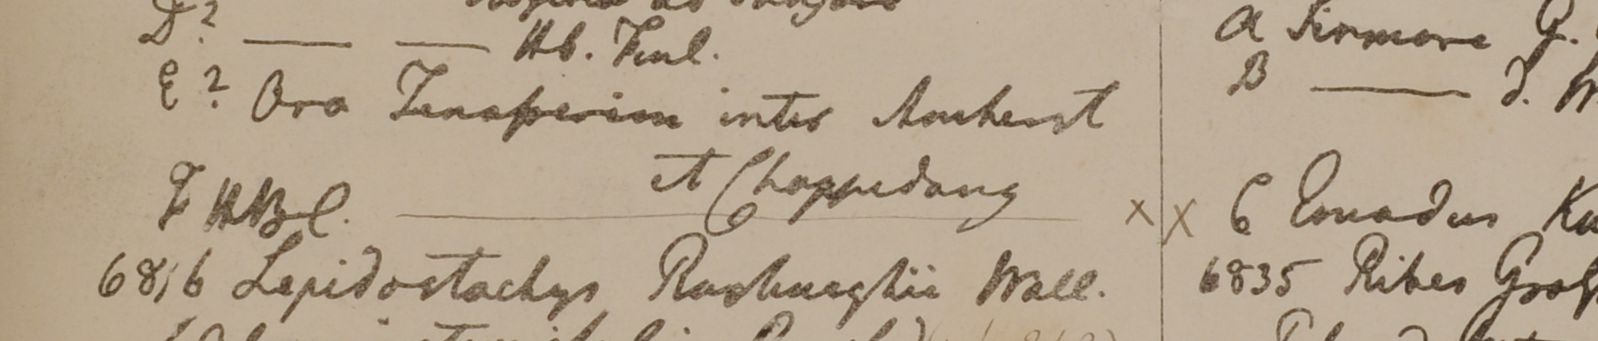 D? — — Hb. Finl.
E? Ora Tenasserim inter Amherst
et Chappedang
F HBC.
6816 Lepidostachys Roxburghii Wall.
a Sirmore G.
B — d.
C Emodus
6835 Ribes